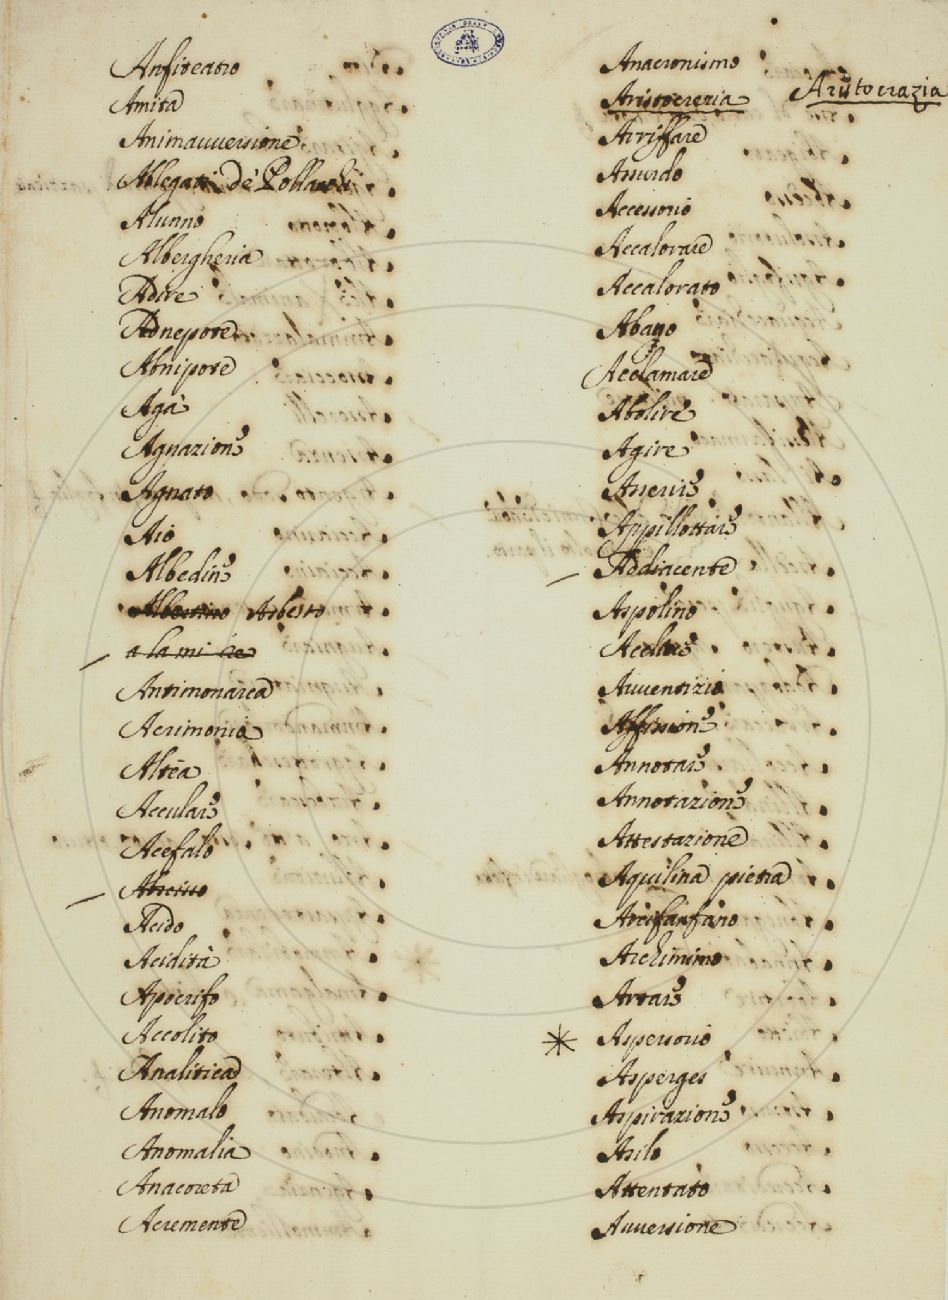 Anfiteatro
Amita
Animavversione
Ablegati de'
Alunno
Albergheria
Adire
Adnepote
Abnipote
Agà
Agnazione
Agnato
Aio
Albedine
Asbesto
a la mi re
Antimonarca
Acrimonia
Altéa
Acculare
Acefalo
Acido
Acidità
Apocrifo
Accolito
Analitica
Anomalo
Anomalia
Anacoreta
Acremente
Anacronismo
Aristocrezia Aristocrazia
Arriffare
Assurdo
Accessorio
Accalorare
Accalorato
Acclamare
Abolire
Agire
Appillottare
Addiacente
Aspolino
Avventizio
Affissione
Annotare
Annotazione
Attestazione
Aquilina pietra
Arcifanfano
Archimimo
Artare
* Aspersorio
Asperges
Aspirazione
Asilo
Attentato
Avversione